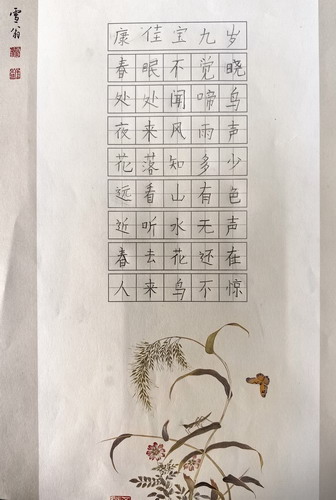 雪翁
康佳宝九岁
春眠不觉晓
处处闻啼鸟
夜来风雨声
花落知多少
远看山有色
近听水无声
春去花还在
人来鸟不惊